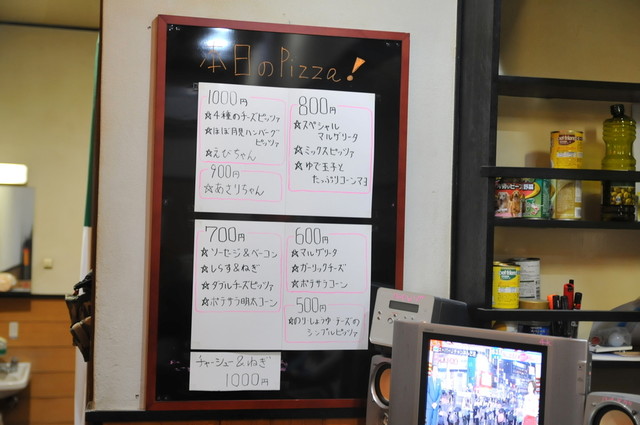 本日のPizza!
1000円
☆4種のチーズピッツァ
☆ほぼ月見ハンバーグ
ピッツァ
☆えびちゃん
900円
☆あさりちゃん
800円
☆スペシャル
マルゲリータ
☆ミックスピッツァ
☆ゆで玉子と
たっぷりコーンマヨ
700円
☆ソーセージ&ベーコン
☆しらす&ねぎ
☆ダブルチーズピッツァ
☆ポテサラ明太コーン
600円
☆マルゲリータ
☆ガーリックチーズ
☆ポテサラコーン
500円
☆のりしょうゆチーズの
シンプルピッツァ
チャーシュー&ねぎ
1000円